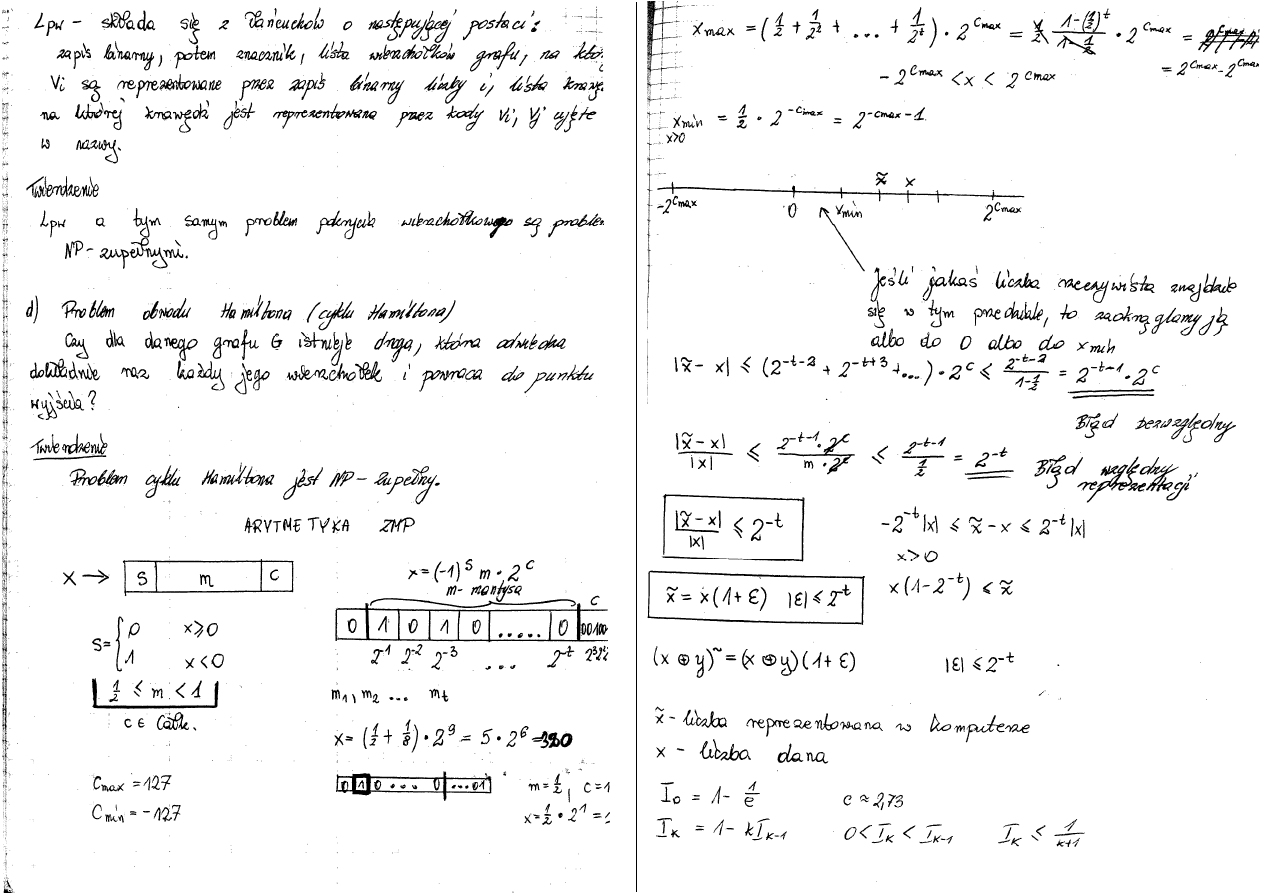 Lpw - składa się z łańcuchów o następującej postaci:
zapis binarny, potem znacznik, lista wierzchołków grafu, na któ
Vi są reprezentowane przez zapis binarny liczby i, lista krawę
na której krawędź jest reprezentowana przez kody Vi, Vj ujęte
w nazwy.
Twierdzenie
Lpw a tym samym problem pokrycia wierzchołkowego są proble
NP-zupełnymi.
d) Problem obwodu Hamiltona (cyklu Hamiltona)
Czy dla danego grafu G istnieje droga, która odwiedza
dokładnie raz każdy jego wierzchołek i powraca do punktu
wyjścia?
Twierdzenie
Problem cyklu Hamiltona jest NP-zupełny.
ARYTMETYKA ZMP
x → S m C
x = (-1)^S m · 2^C
m - mantysa
C
0 1 0 1 0 ..... 0 00100
2^-1 2^-2 2^-3 ... 2^-t
S = { 0 x ≥ 0
1 x < 0
1/2 ≤ m < 1
C ∈ Całk.
m1, m2 ... mt
x = (1/2 + 1/8) · 2^9 = 5 · 2^6 = 320
Cmax = 127
Cmin = -127
0 1 0 .... 0 ...01
m = 1/2, c = 1
x = 1/2 · 2^1 = 1
xmax = (1/2 + 1/2^2 + ... + 1/2^t) · 2^Cmax = 1/2 (1-(1/2)^t)/(1-1/2) · 2^Cmax =
= 2^Cmax - 2^Cmax
-2^Cmax < x < 2^Cmax
xmin = 1/2 · 2^-Cmax = 2^-Cmax-1
x>0
x̃ x
-2^Cmax 0 xmin 2^Cmax
Jeśli jakaś liczba rzeczywista znajdzie
się w tym przedziale, to zaokrąglamy ją
albo do 0 albo do xmin
|x̃ - x| ≤ (2^-t-2 + 2^-t+3 + ...) · 2^C ≤ 2^-t-2/(1-1/2) = 2^-t-1 · 2^C
Błąd bezwzględny
|x̃ - x|/|x| ≤ (2^-t-1 · 2^C)/(m · 2^C) ≤ 2^-t-1/(1/2) = 2^-t Błąd względny
reprezentacji
|x̃ - x|/|x| ≤ 2^-t
-2^-t|x| ≤ x̃ - x ≤ 2^-t|x|
x > 0
x̃ = x(1+ε) |ε| ≤ 2^-t
x(1-2^-t) ≤ x̃
(x ⊕ y)~ = (x ⊕ y)(1+ε) |ε| ≤ 2^-t
x̃ - liczba reprezentowana w komputerze
x - liczba dana
I0 = 1 - 1/e e ≈ 2,73
Ik = 1 - kIk-1 0 < Ik < Ik-1 Ik ≤ 1/(k+1)